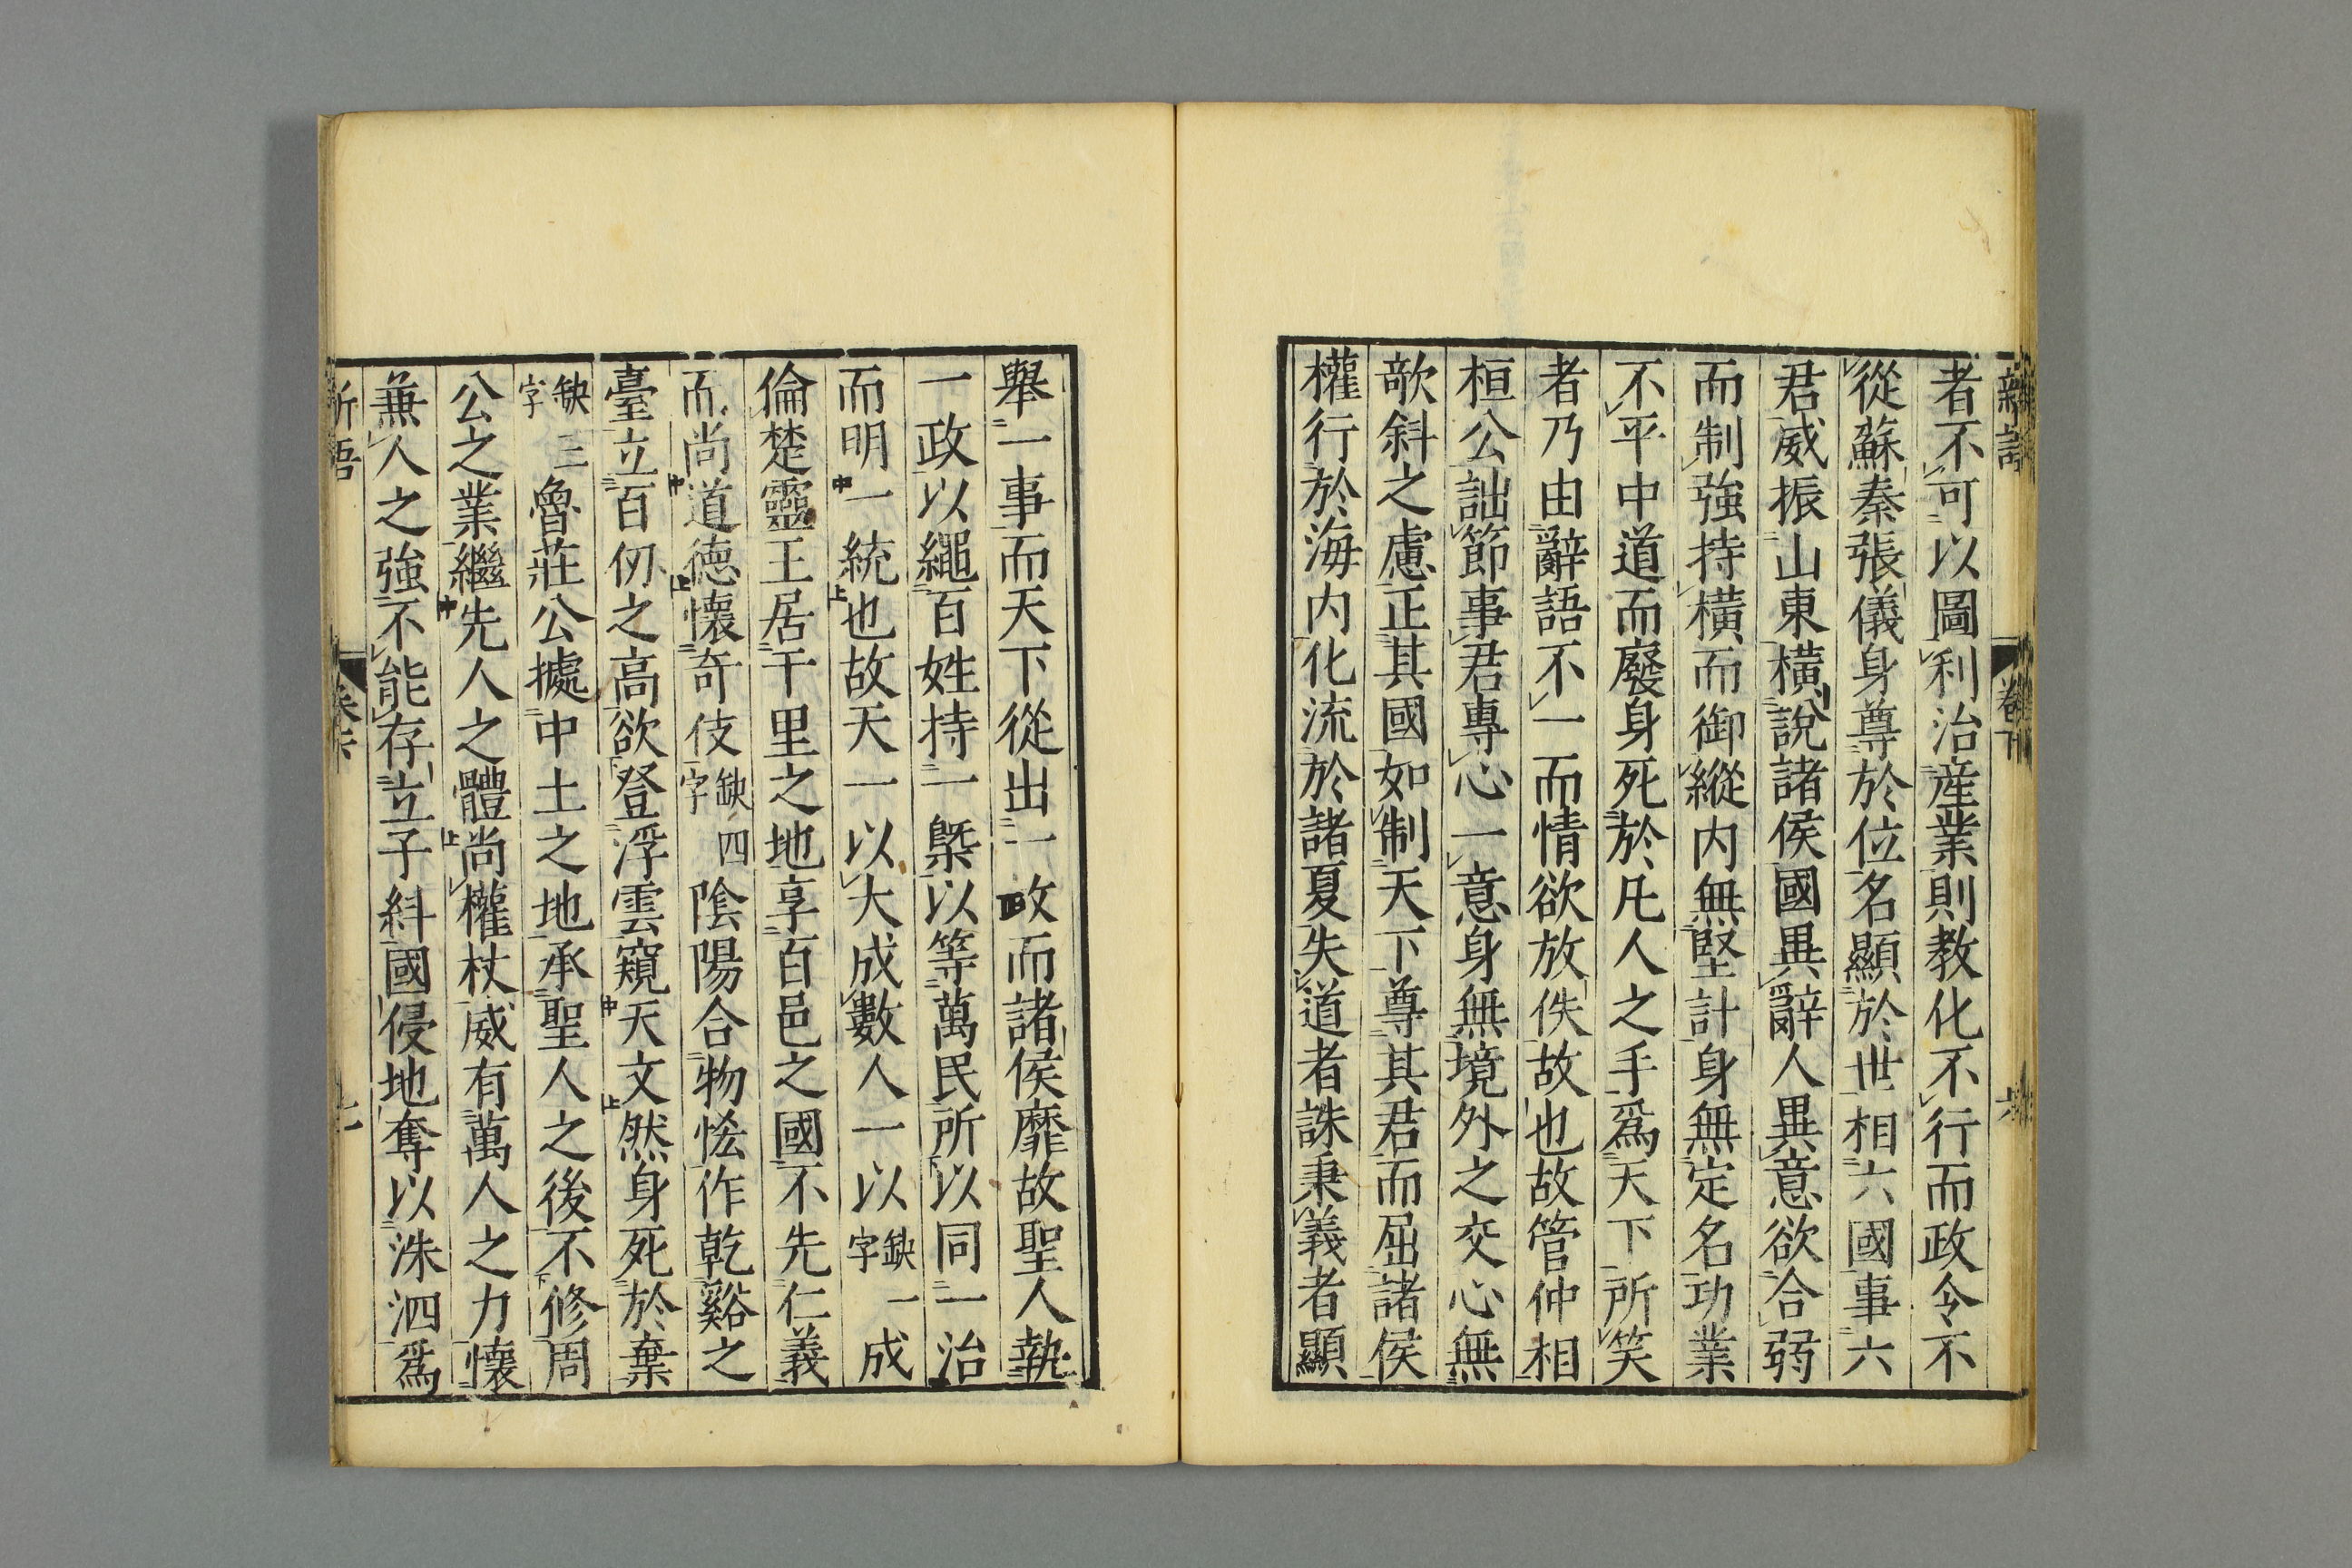 新語 卷下 六
者不可以圖利治産業則教化不行而政令不
從蘇秦張儀身尊於位名顯於世相六國事六
君威振山東橫說諸侯國異辭人異意欲合弱
而制強持橫而御縱内無堅計身無定名功業
不平中道而廢身死於凡人之手爲天下所笑
者乃由辭語不一而情欲放佚故也故管仲相
桓公詘節事君專心一意身無境外之交心無
欹斜之慮正其國如制天下尊其君而屈諸侯
權行於海内化流於諸夏失道者誅秉義者顯
舉一事而天下從出一政而諸侯靡故聖人執
一政以繩百姓持一槩以等萬民所以同一治
而明一統也故天一以大成數人一以缺一字成
倫楚靈王居千里之地享百邑之國不先仁義
而尚道德懷奇伎缺四字陰陽合物怪作乾谿之
臺立百仞之高欲登浮雲窺天文然身死於棄
缺三字魯莊公據中土之地承聖人之後不修周
公之業繼先人之體尚權杖威有萬人之力懷
兼人之強不能存立子糾國侵地奪以洙泗爲
新語 卷下